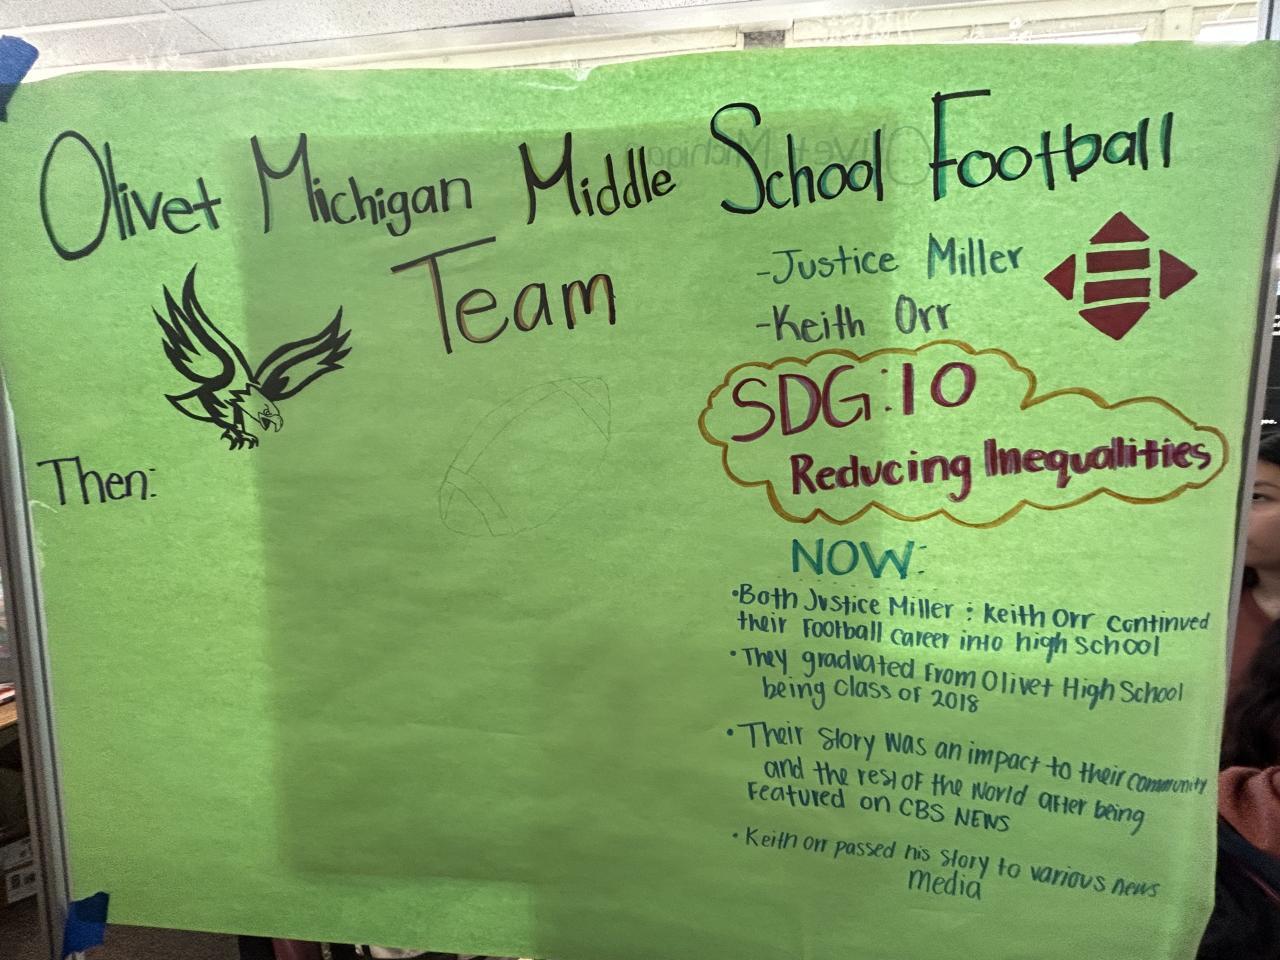 Olivet Michigan Middle School Football
Team
-Justice Miller
-Keith Orr
SDG:10
Reducing Inequalities
Then:
NOW:
•Both Justice Miller : Keith Orr continued
their Football career into high School
•They graduated From Olivet High School
being class of 2018
•Their story was an impact to their community
and the rest of the World after being
Featured on CBS NEWS
•Keith Orr passed his story to various news
Media
Olivet Michigan